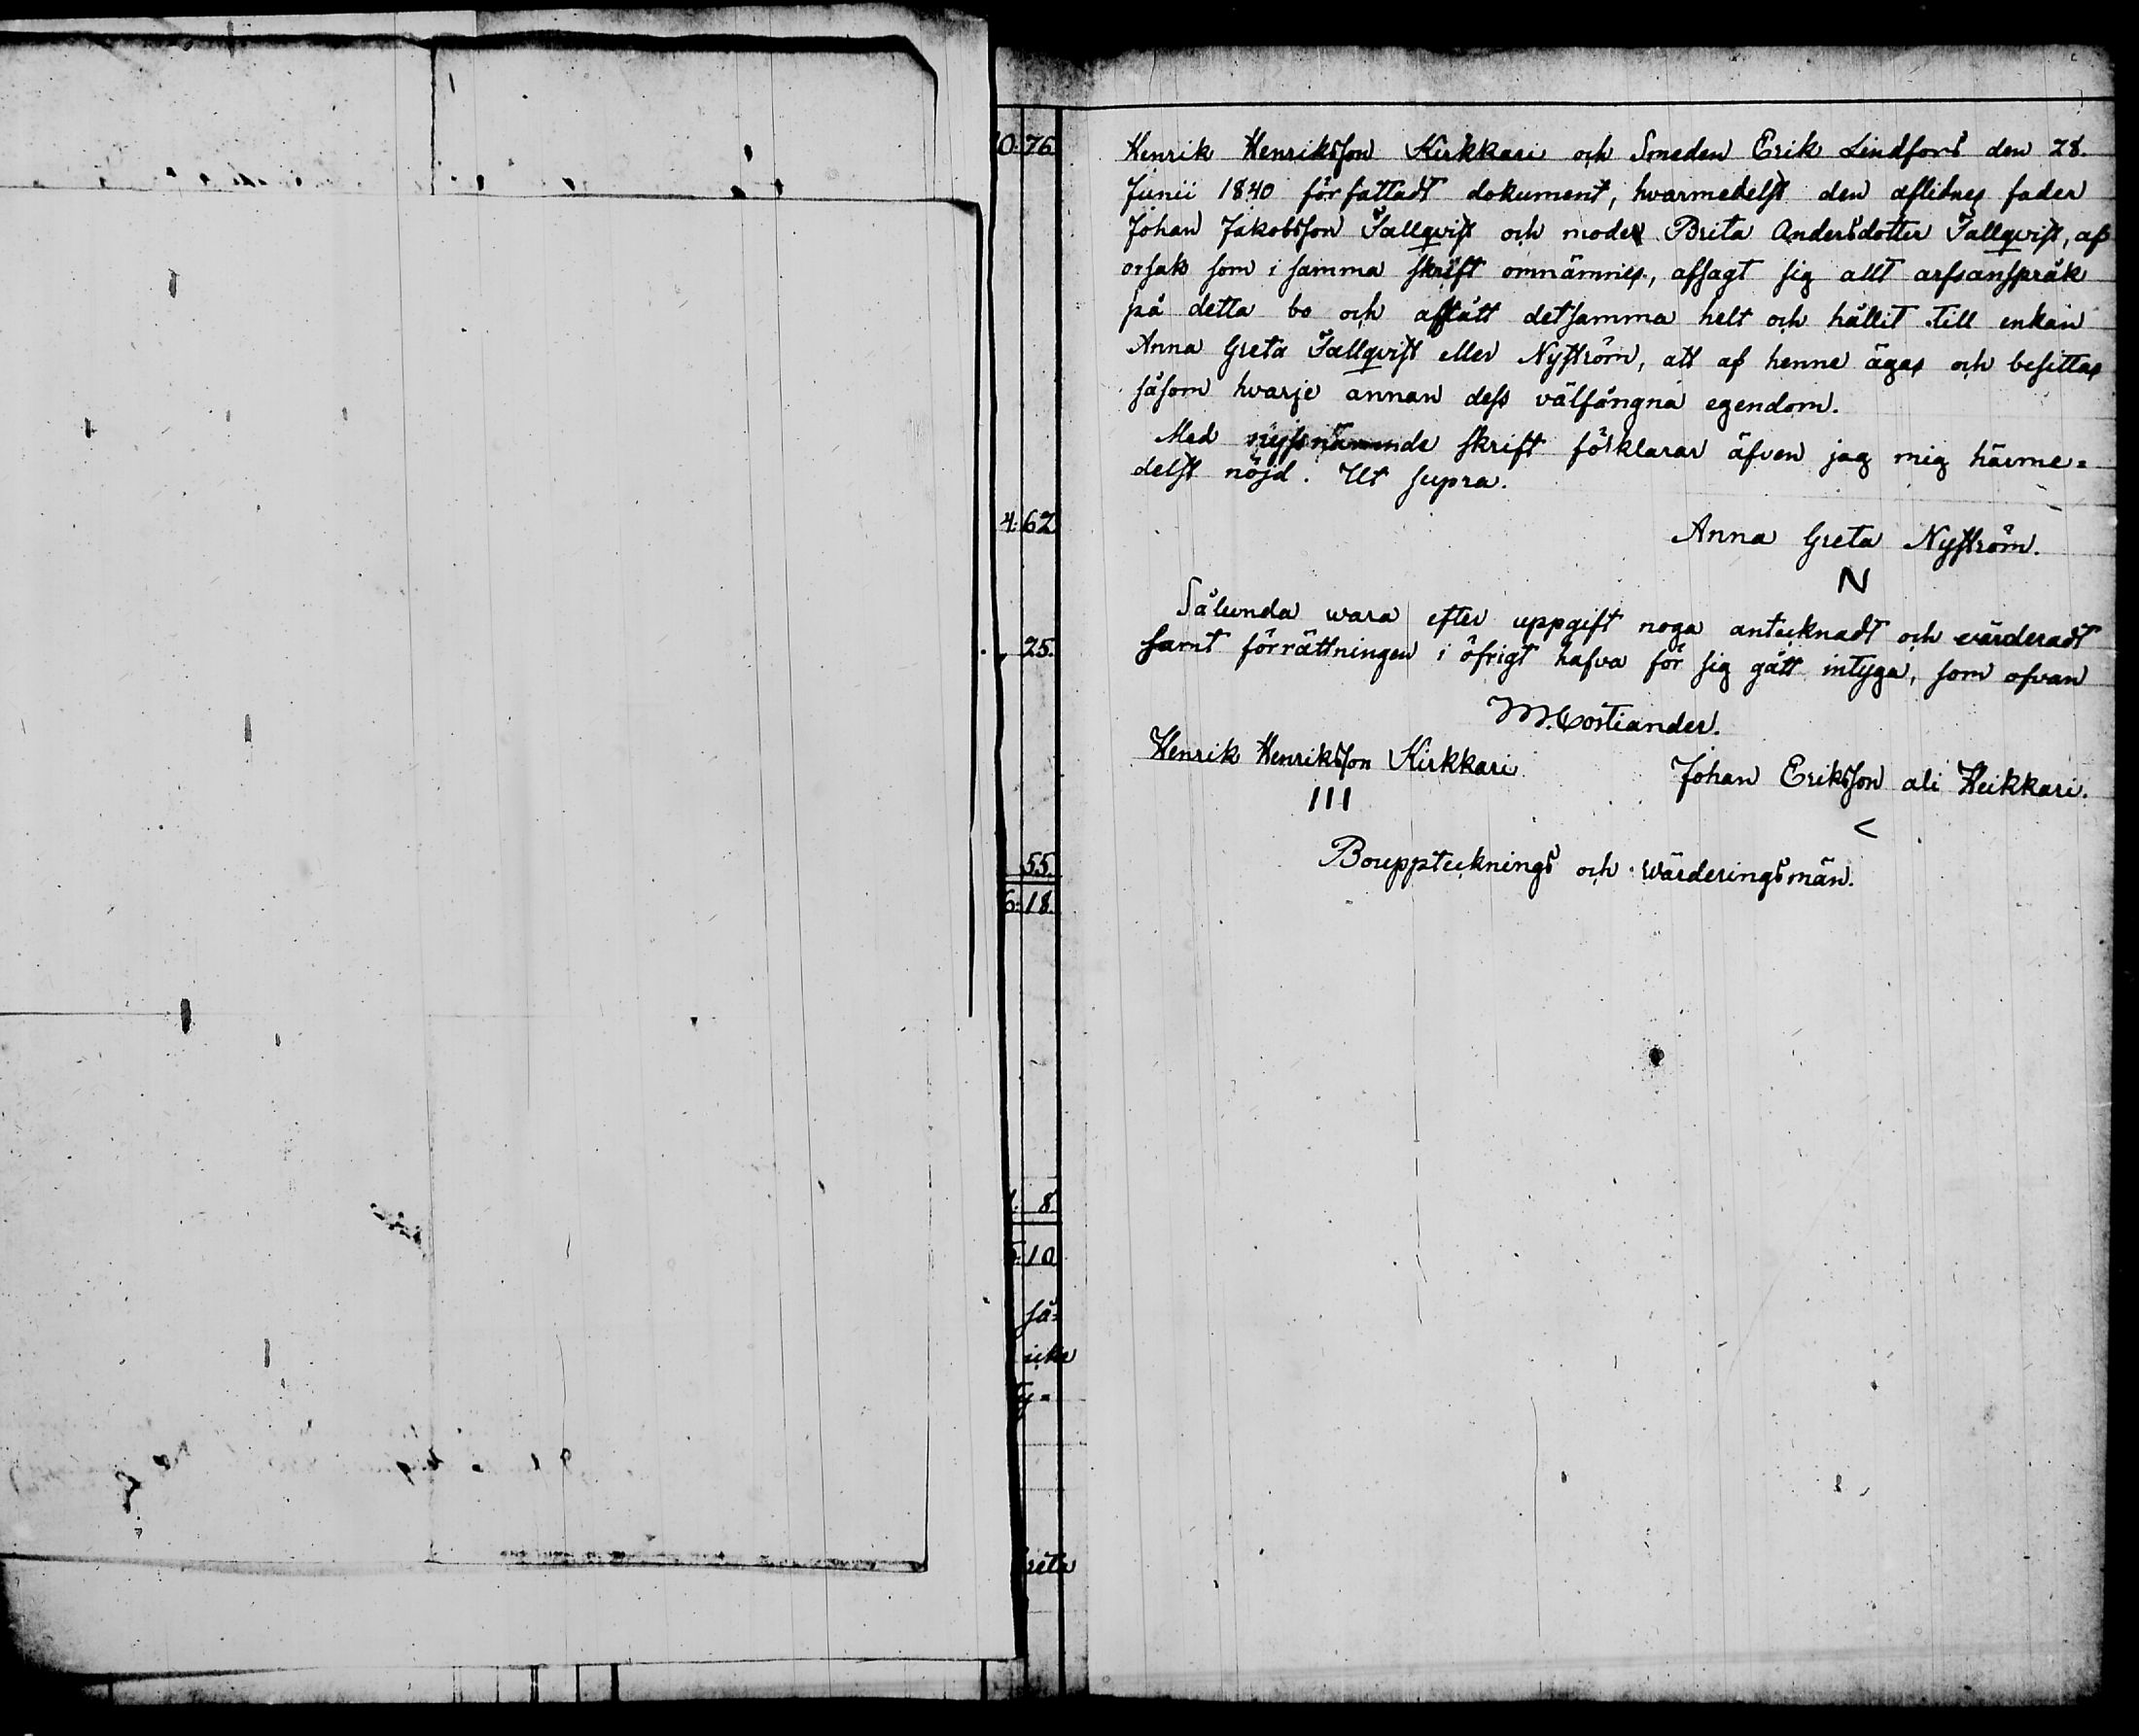 0: 76
4: 62
25.
55.
6: 18.
1. 8.
5: 10
så=
icke
ty=
reta
Henrik Henriksson Kirkkari och Smeden Erik Lindfors den 28.
Junii 1840 författadt dokument, hvarmedelst den aflidnes fader
Johan Jakobsson Tallqvist och moder Brita Andersdotter Tallqvist, af
orsak som i samma skrift omnämnes, afsagt sig allt arfsanspråk
på detta bo och afstått detsamma helt och hållit till enkan
Anna Greta Tallqvist eller Nyström, att af henne ägas och besittas
såsom hvarje annan dess välfångna egendom.
Med nyssnämnde skrift förklarar äfven jag mig härme=
delst nöjd. Ut supra.
Anna Greta Nyström.
N
Sålunda wara efter uppgift noga antecknadt och värderadt
samt förrättningen i öfrigt hafva för sig gått intyga, som ofvan
M. Costiander.
Henrik Henriksson Kirkkari
III
Johan Eriksson ali Heikkari.
<
Bouppteknings och wärderingsmän.